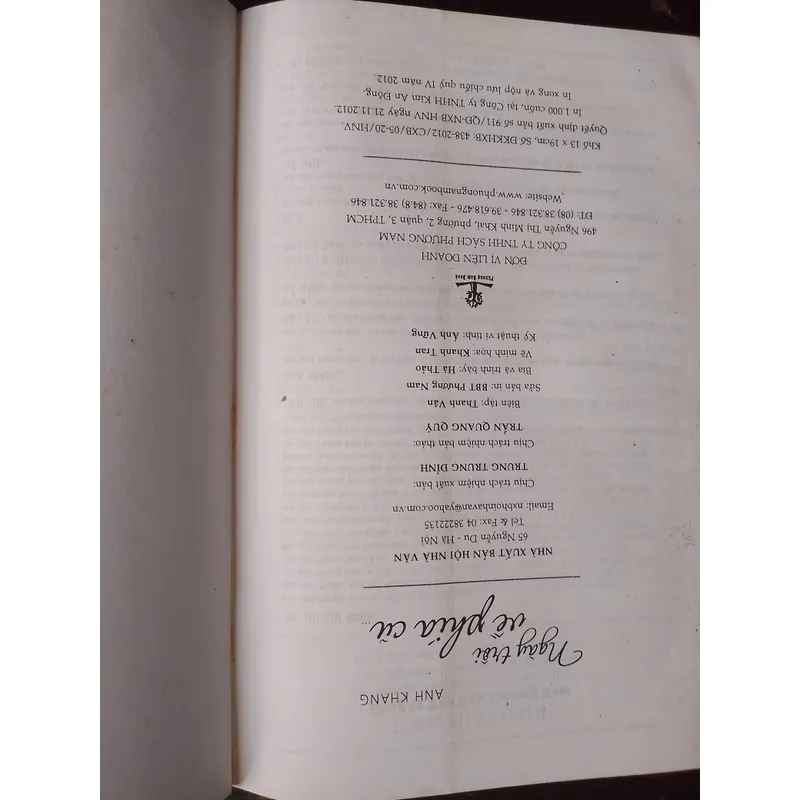 ANH KHANG
Ngày trôi
về phía cũ...
NHÀ XUẤT BẢN HỘI NHÀ VĂN
65 Nguyễn Du - Hà Nội
Tel & Fax: 04 38222135
Email: nxbhoinhavan@yahoo.com.vn
Chịu trách nhiệm xuất bản:
TRUNG TRUNG ĐỈNH
Chịu trách nhiệm bản thảo:
TRẦN QUANG QUÝ
Biên tập: Thanh Vân
Sửa bản in: BBT Phương Nam
Bìa và trình bày: Hà Thảo
Vẽ minh họa: Khanh Tran
Kỹ thuật vi tính: Ánh Vững
Phuong Nam Book
ĐƠN VỊ LIÊN DOANH
CÔNG TY TNHH SÁCH PHƯƠNG NAM
496 Nguyễn Thị Minh Khai, phường 2, quận 3, TPHCM
ĐT: (08) 38.321.846 - 39.618.476 - Fax: (84.8) 38.321.846
Website: www.phuongnambook.com.vn
Khổ 13 x 19cm, Số ĐKKHXB: 438-2012/CXB/05-20/HNV.
Quyết định xuất bản số 911/QĐ-NXB HNV ngày 21.11.2012.
In 1.000 cuốn, tại Công ty TNHH Kim An Đông.
In xong và nộp lưu chiểu quý IV năm 2012.